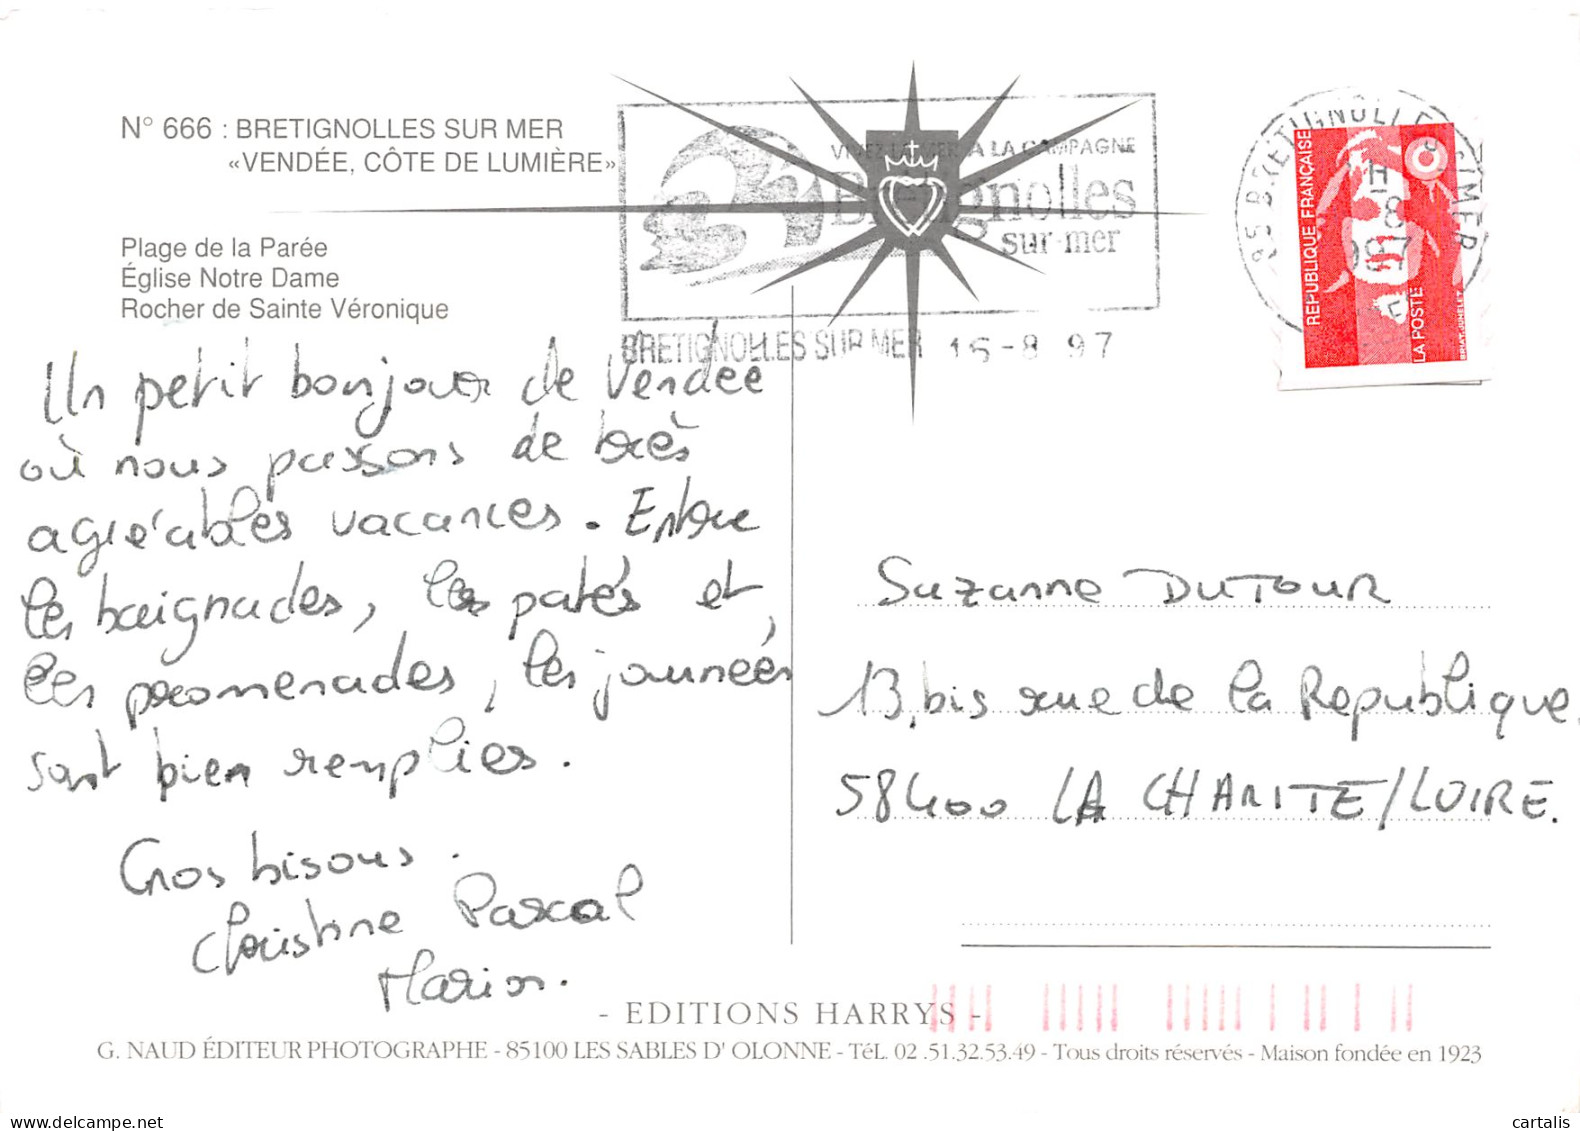 N° 666 : BRETIGNOLLES SUR MER
«VENDÉE, CÔTE DE LUMIÈRE»
Plage de la Parée
Église Notre Dame
Rocher de Sainte Véronique
VIVEZ LA MER A LA CAMPAGNE
Brétignolles
sur-mer
BRETIGNOLLES SUR MER 16-8 97
REPUBLIQUE FRANÇAISE
LA POSTE
Un petit bonjour de Vendée
où nous passons de très
agréables vacances. Entre
les baignades, les patés et,
les promenades, les journées
sont bien remplies.
Gros bisous.
Christine Pascal
Marion.
Suzanne DUTOUR
13, bis rue de la Republique.
58400 LA CHARITE/LOIRE.
- EDITIONS HARRYS -
G. NAUD ÉDITEUR PHOTOGRAPHE - 85100 LES SABLES D' OLONNE - TéL. 02 .51.32.53.49 - Tous droits réservés - Maison fondée en 1923
cartalis